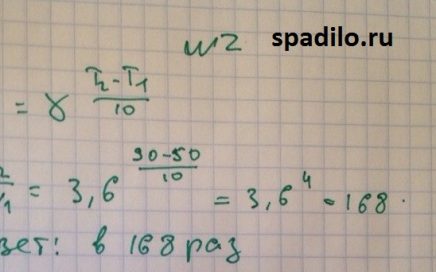 №2 spadilo.ru
= γ^((T₂-T₁)/10)
2/1 = 3,6^((90-50)/10) = 3,6⁴ = 168.
вет: в 168 раз